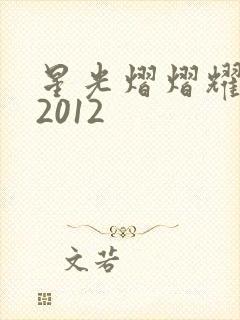 星光熠熠耀
2012
文若